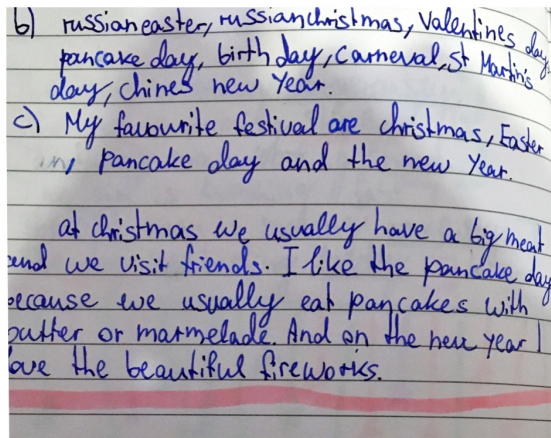 b) russian easter, russian christmas, Valentines day,
pancake day, birth day, Carneval, St Martin's
day, chines new Year.
c) My favourite festival are christmas, Easter
, pancake day and the new Year.
at christmas we usually have a big meat
and we visit friends. I like the pancake day
because we usually eat pancakes with
butter or marmelade. And on the new year I
love the beautiful fireworks.